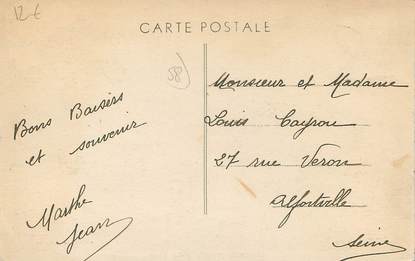 12 €
CARTE POSTALE
58
Bons Baisers
et souvenir
Marthe
Jean
Monsieur et Madame
Louis Cayrou
27 rue Veron
Alfortville
Seine